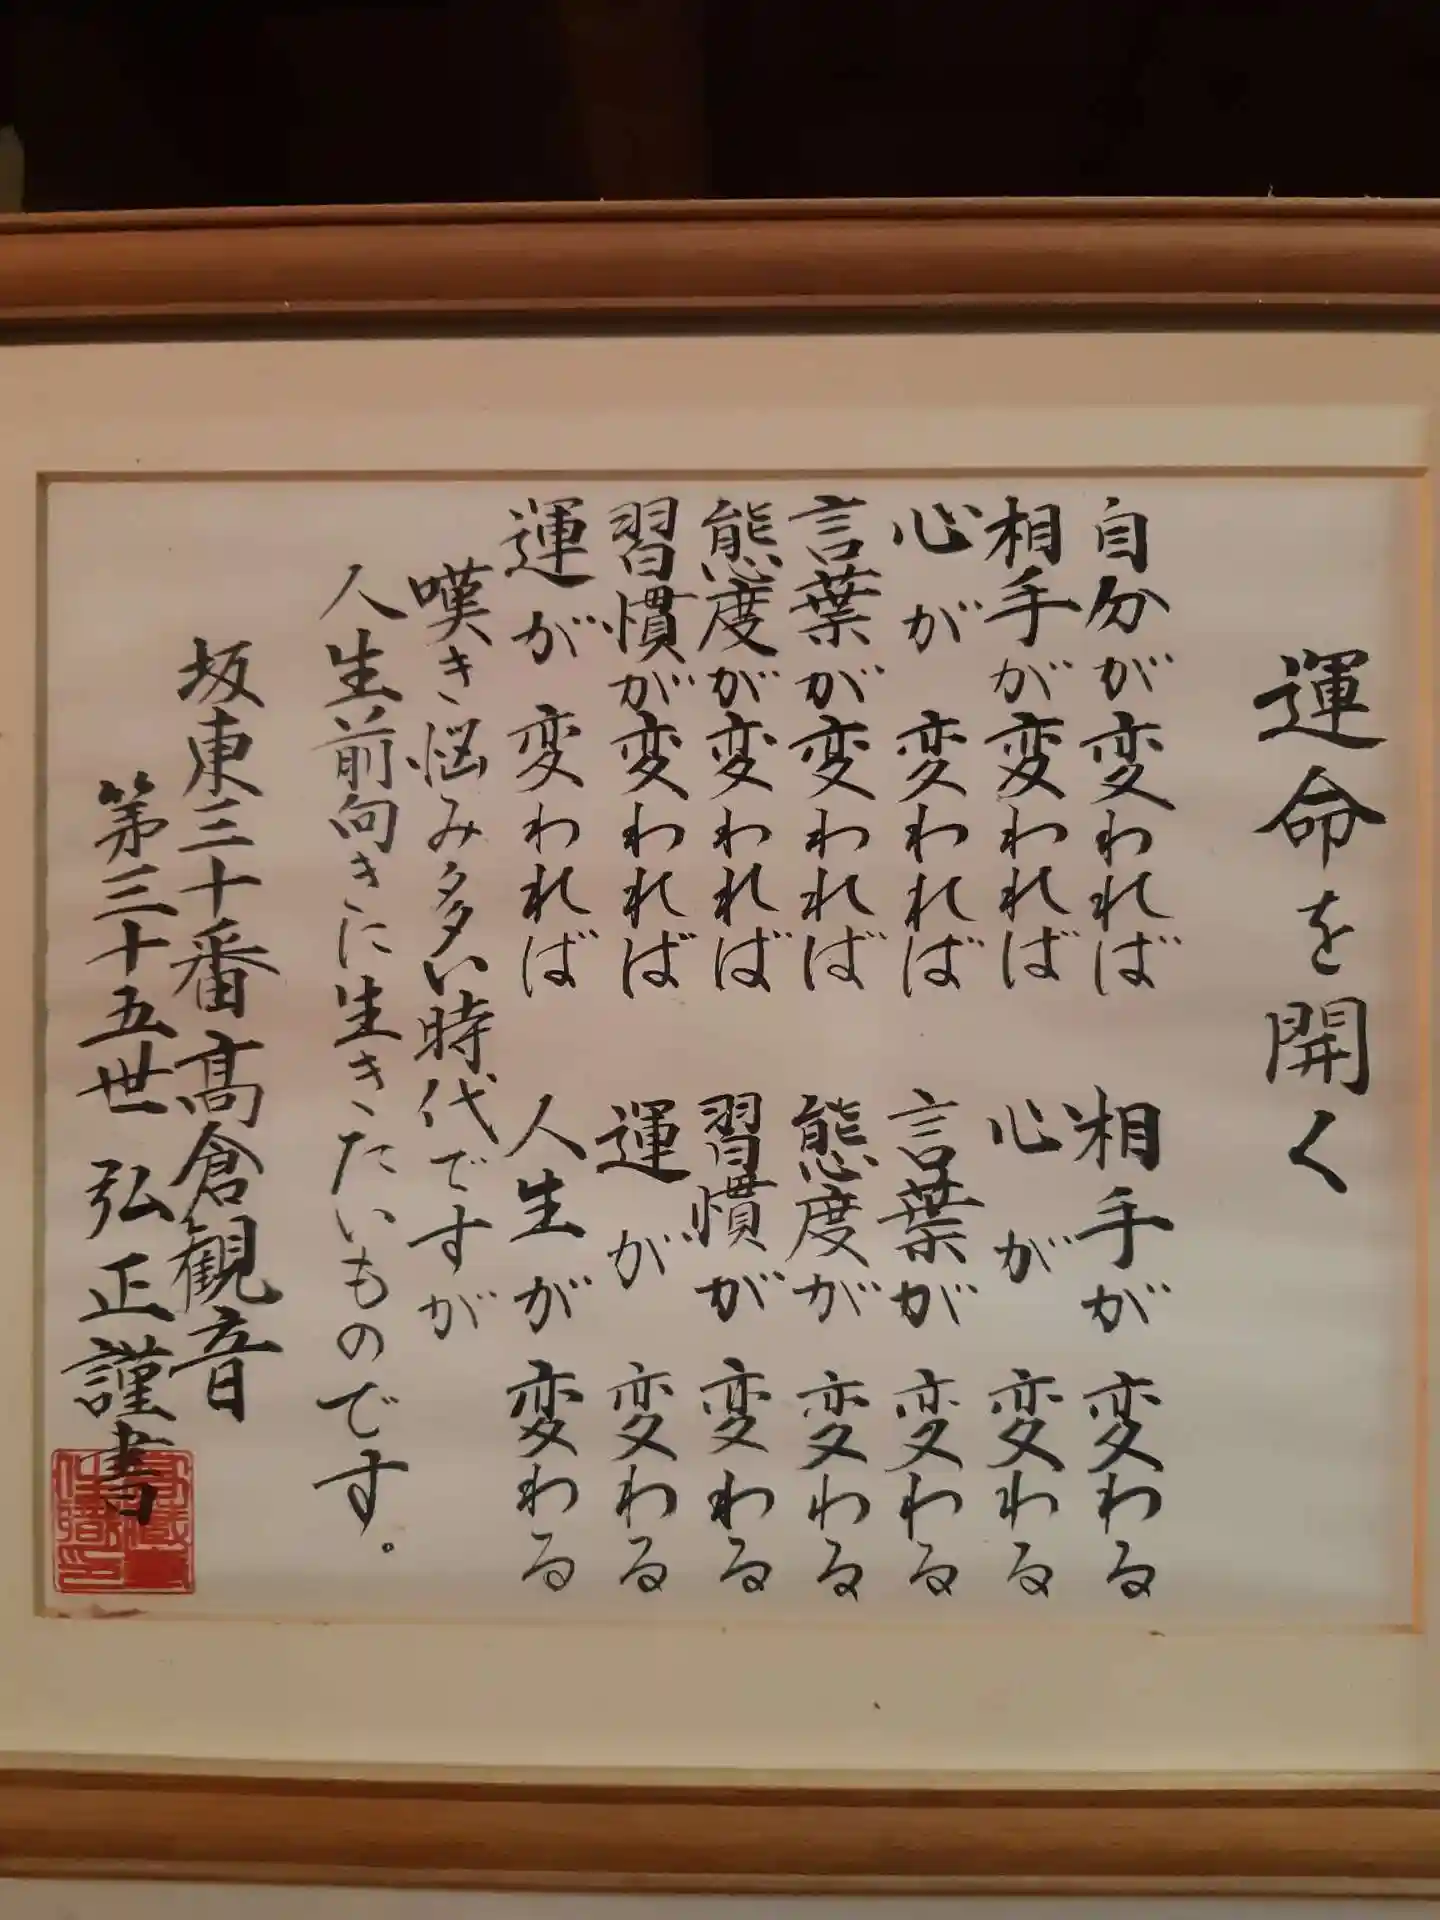 運命を開く
自分が変われば 相手が変わる
相手が変われば 心が変わる
心が変われば 言葉が変わる
言葉が変われば 態度が変わる
態度が変われば 習慣が変わる
習慣が変われば 運が変わる
運が変われば 人生が変わる
嘆き悩み多い時代ですが
人生前向きに生きたいものです。
坂東三十番高倉観音
第三十五世 弘正謹書